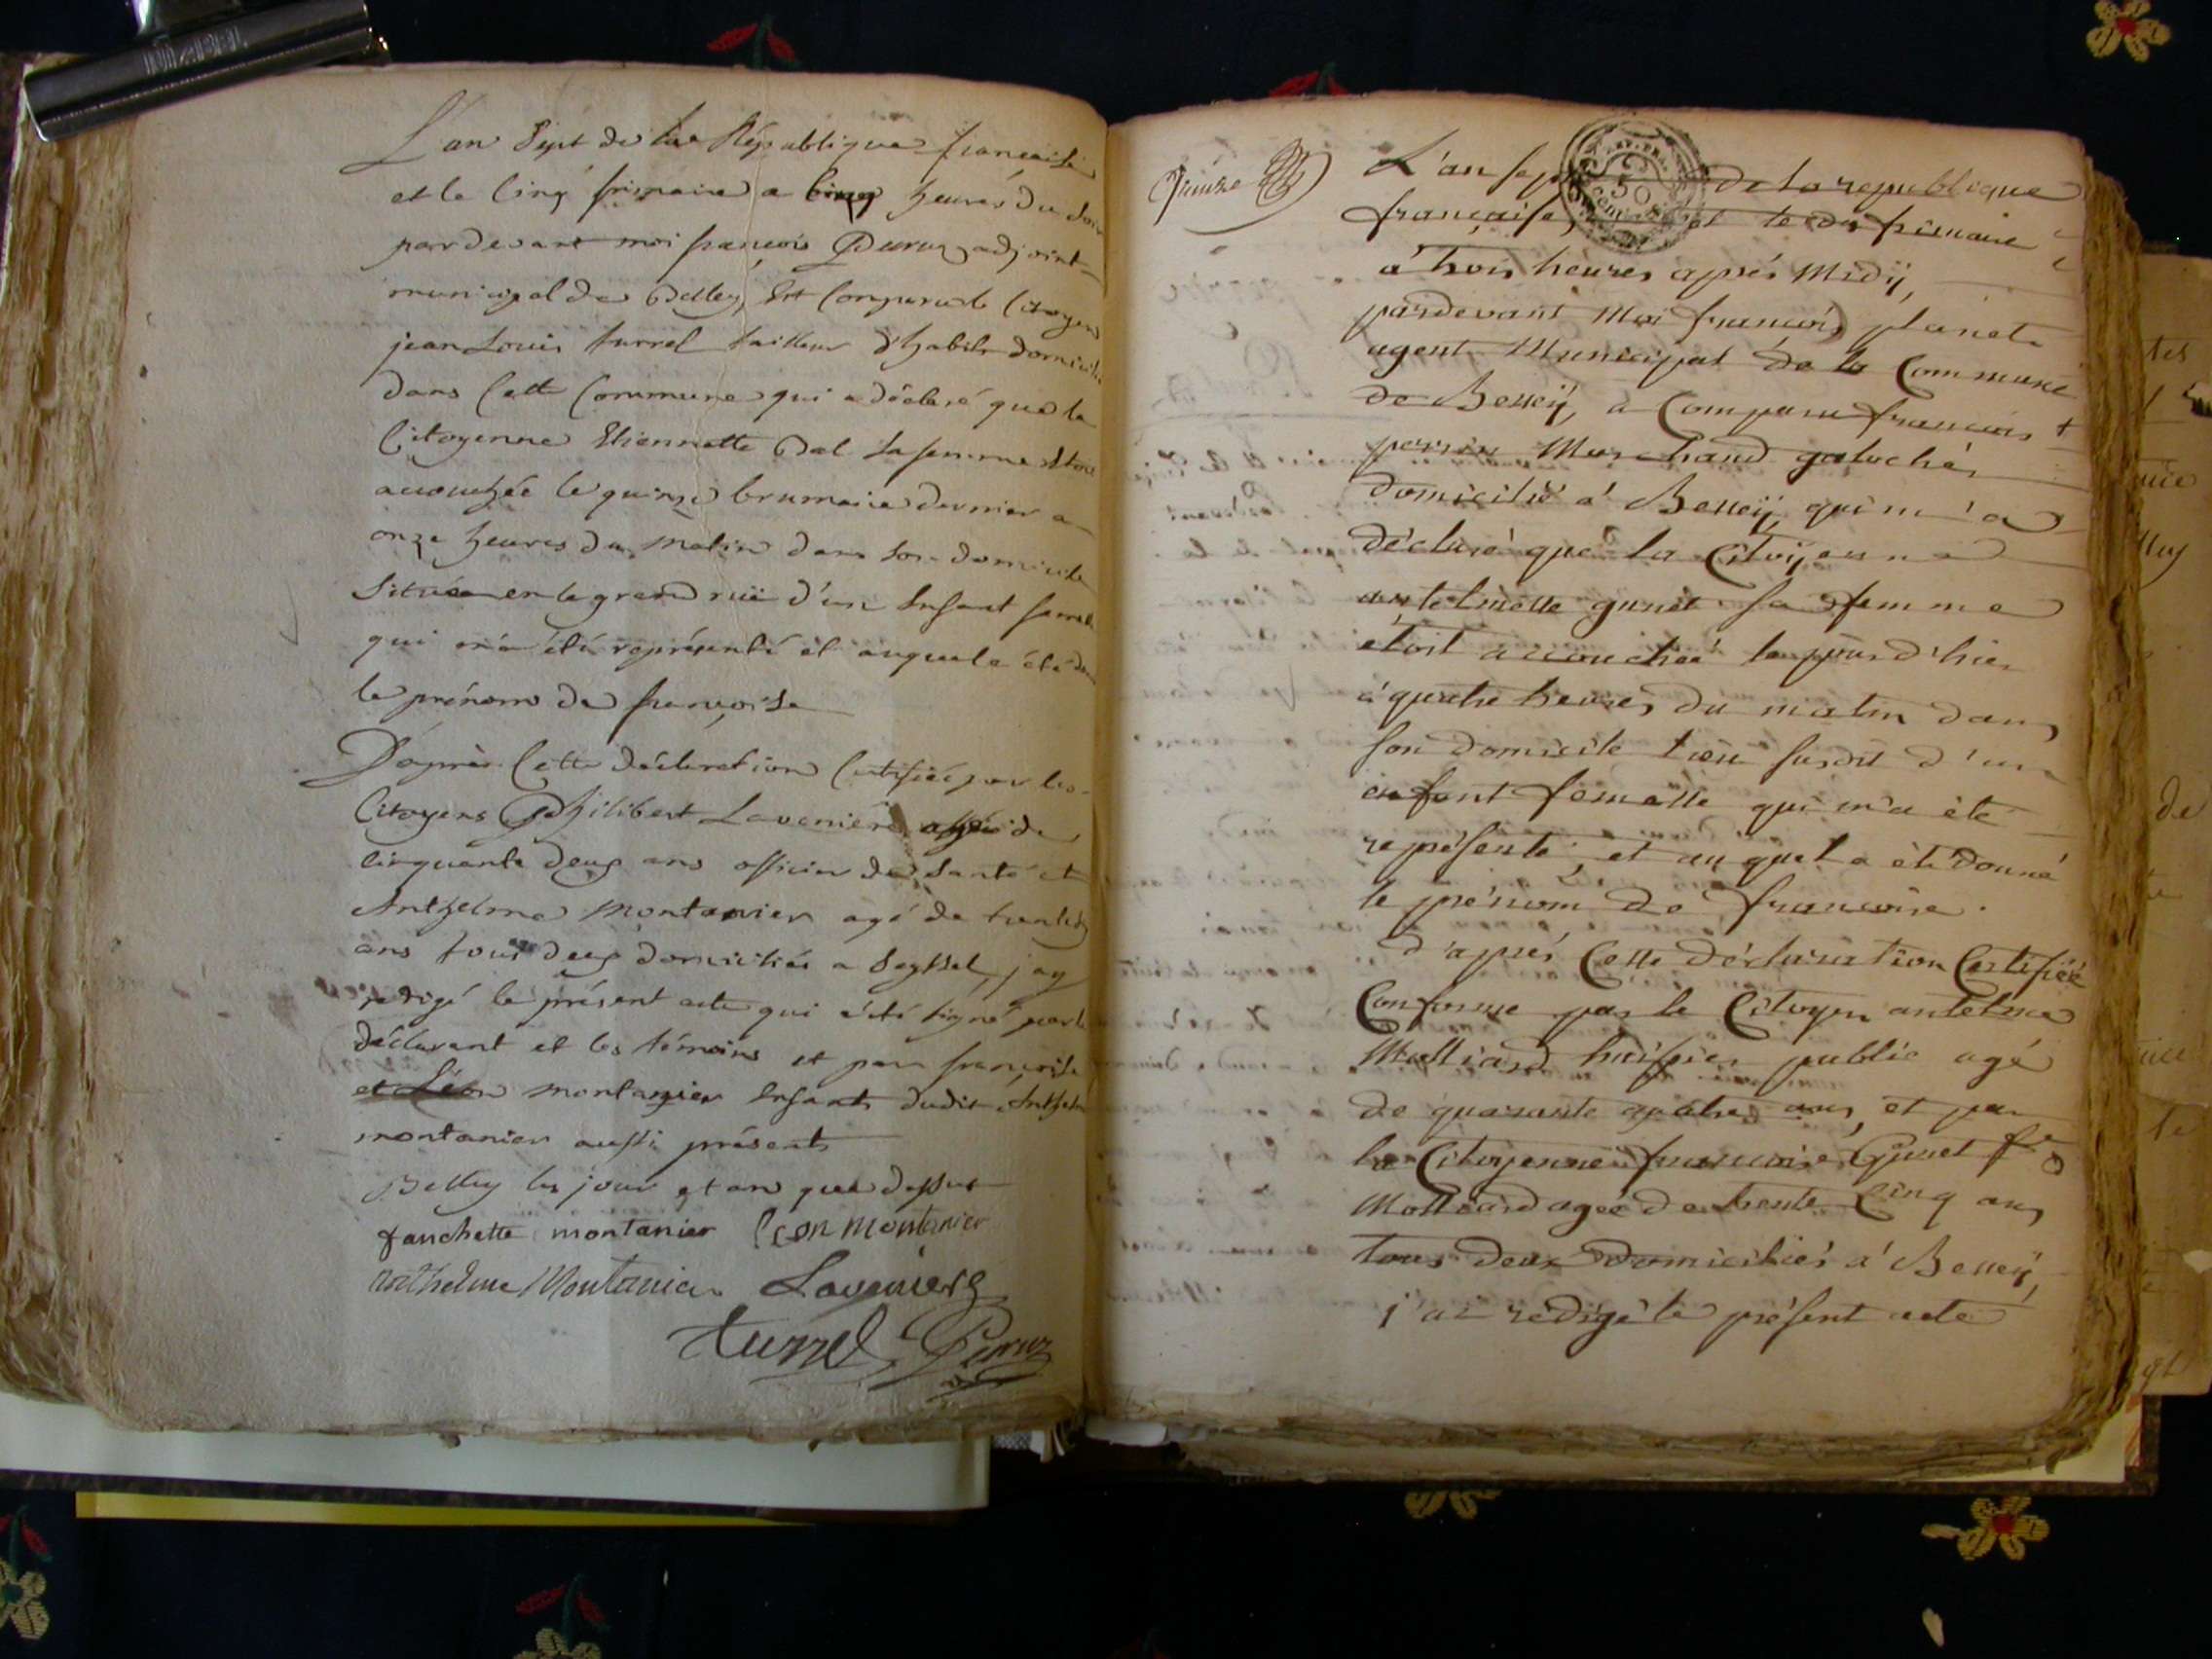 L'an Sept de la République francaise
et le Cinq frimaire a cinq heures du Soir
pardevant moi francois Peruz adjoint
municipal de Belley, Est Comparu le Citoyen
jean Louis turrel tailleur d'habits domicilié
dans Cette Commune qui a déclaré que la
Citoyenne Etiennette Bal Sa femme Etoit
accouchée le quinze brumaire dernier a
onze heures du matin dans Son domicile
Située en la grand rüe d'un Enfant femelle
qui m'a été représenté et auquel a été donné
le prénom de françoise
D'après Cette déclaration Certifiée par les
Citoyens Philibert Laveniere agé de
cinquante deux ans officier de Santé et
Anthelme montanier agé de
ans tous deux domiciliés a Seyssel, j'ay
redigé le présent acte qui a été signé par le
déclarant et les témoins et par françoise
et Léon montanier Enfants dudit Anthelme
montanier aussi présents
Belley les jour et an que dessus
fanchette montanier Leon montanier
anthelme Montanier Laveniere
turrel Peruz
Quinze
L'an sept de la republique
française, et le dix frimaire
à trois heures après Midÿ,
pardevant Moi françois planet
agent Municipal de la Commune
de Belleÿ, a Comparu françois
perrin Marchand galochér
domicilié a' Belleÿ, qui m'a
déclaré que la Citoÿenne
antelmette gunet sa femme
étoit accouchée le jour d'hier
à quatre heures du matin dans
son domicile lieu susdit d'un
enfant femelle qui m'a été
représenté, et auquel a été donné
le prénom de francoise.
d'après Cette déclaration Certifiée
Conforme par le Citoyen antelme
Molliard huissier public agé
de quarante quatre ans, et par
la Citoyenne francoise Gunet fe
Molliard agée de trente Cinq ans
tous deux domiciliés a' Belleÿ,
j'ai rédigé le présent acte